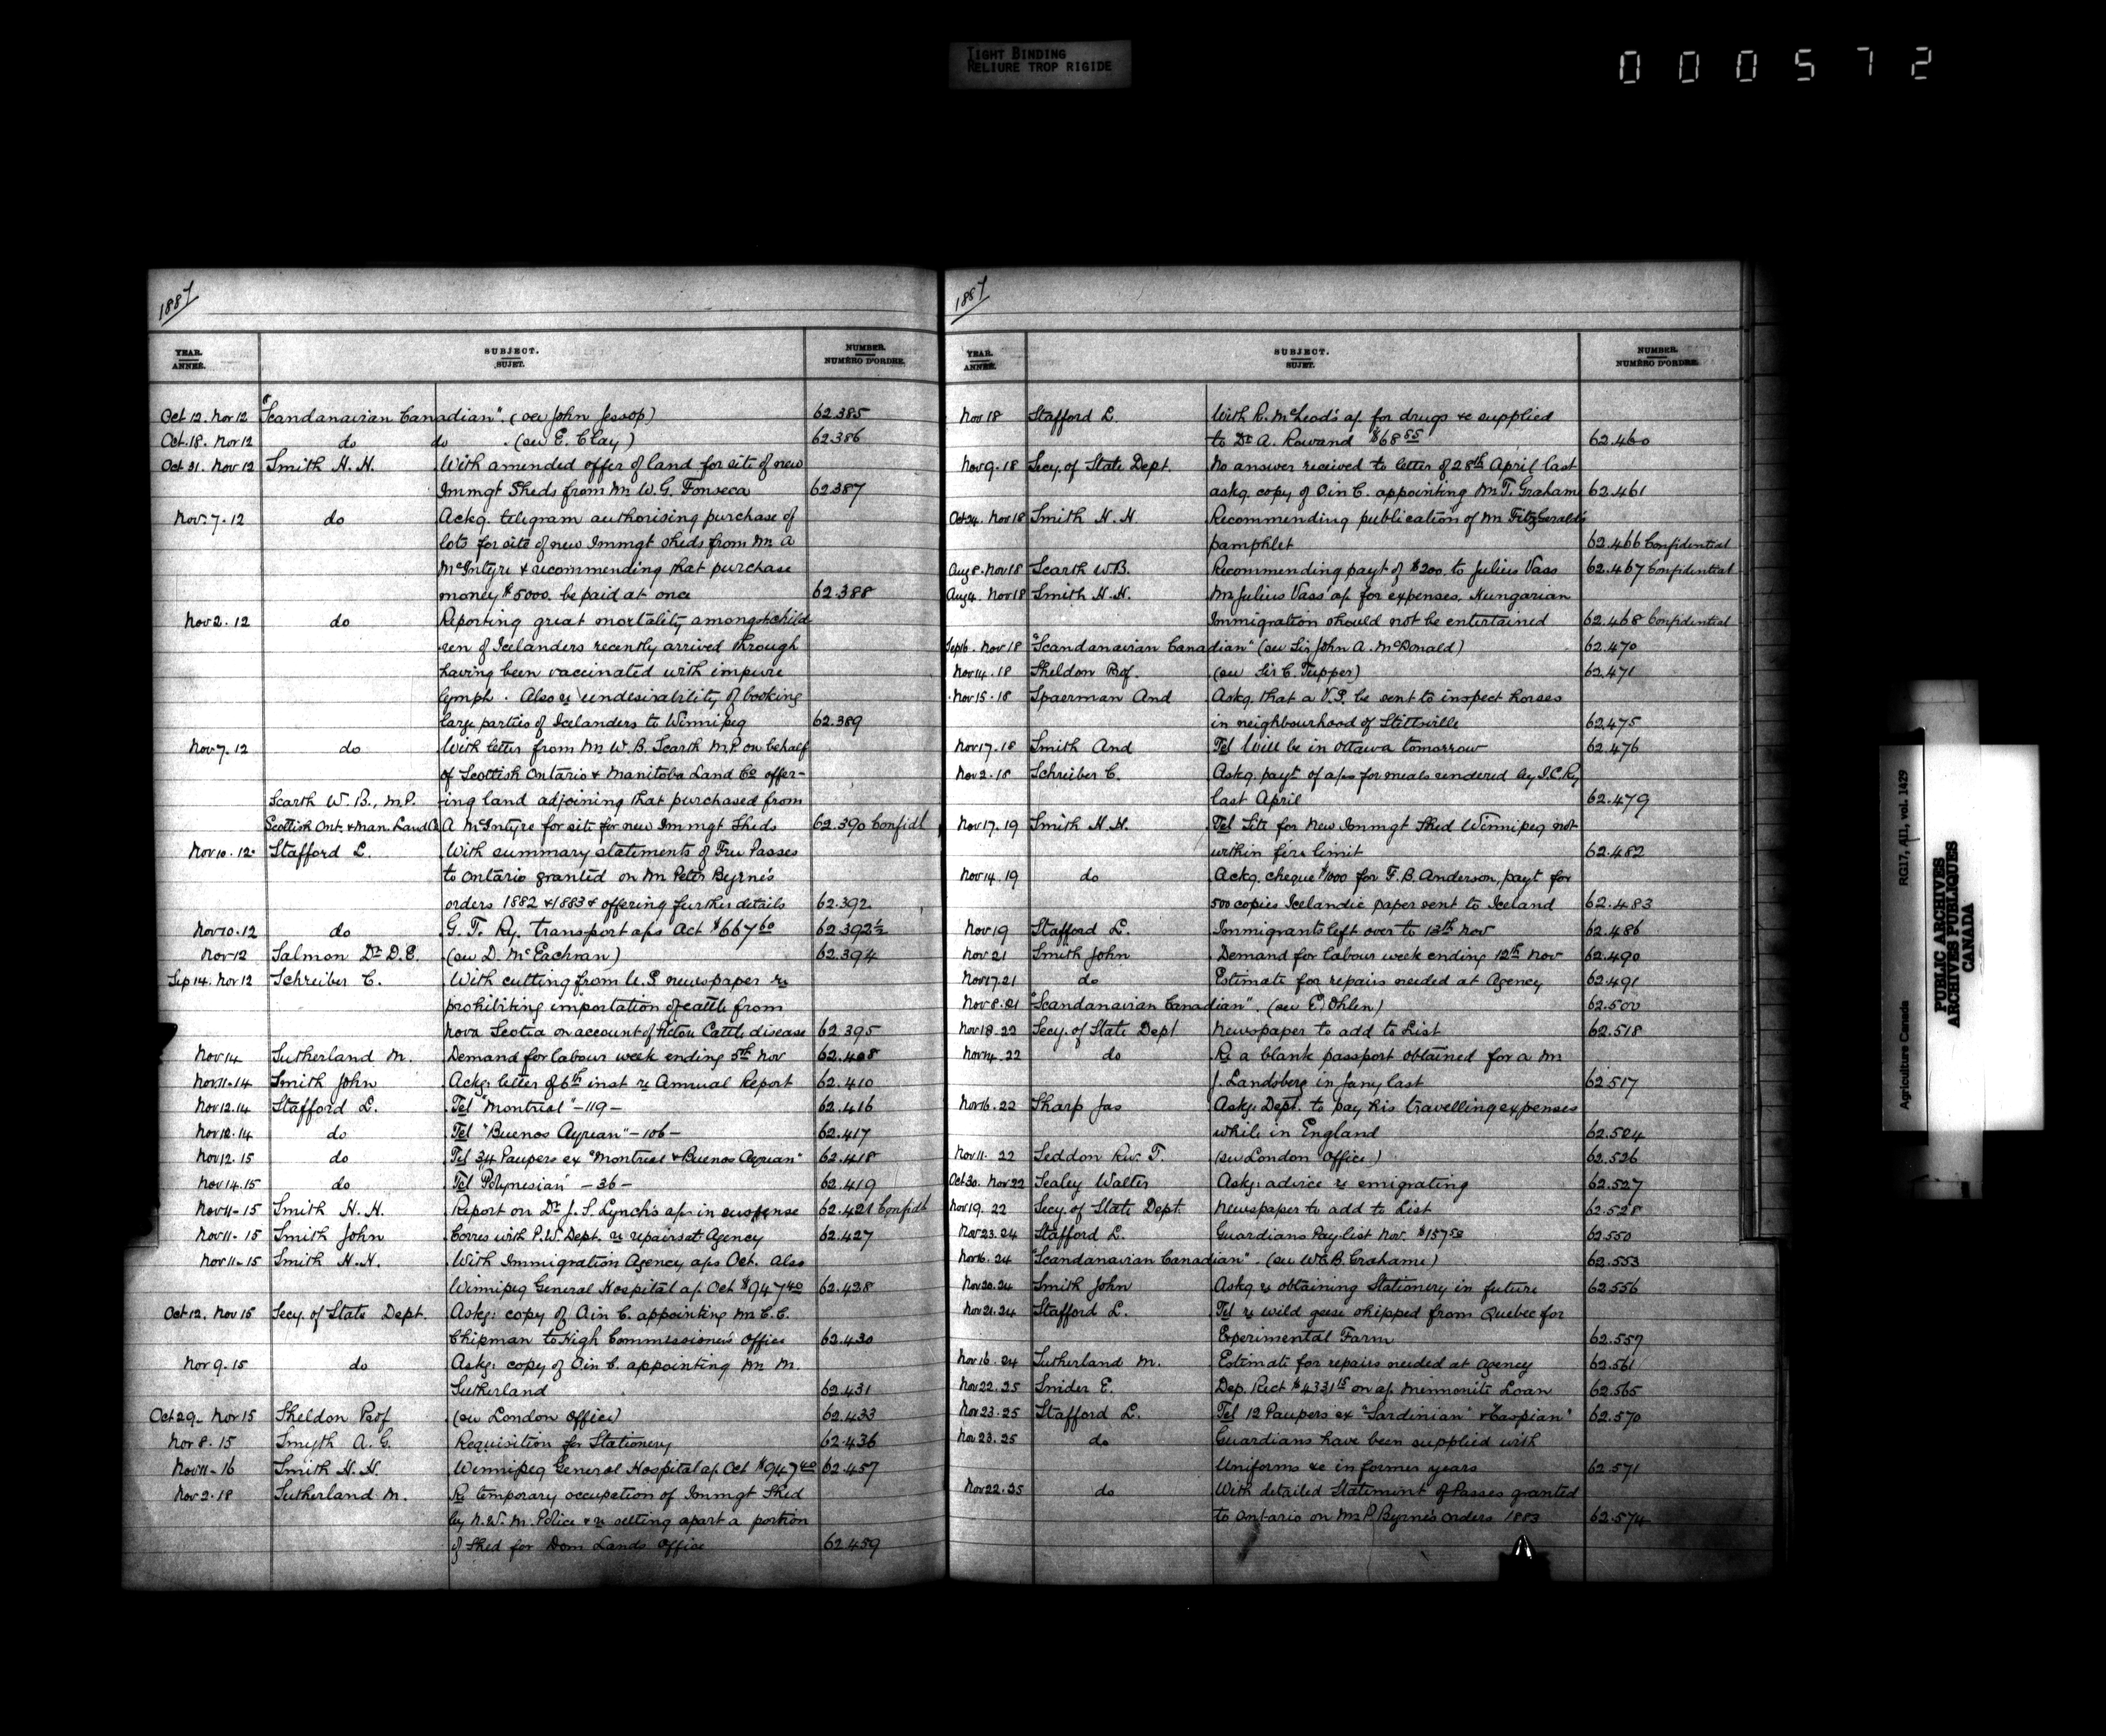 TIGHT BINDING
RELIURE TROP RIGIDE
000572
1887
YEAR. ANNÉE. SUBJECT. SUJET. NUMBER. NUMÉRO D'ORDRE.
Oct 12. Nov 12 "Scandanavian Canadian". (see John Jessop) 62.385
Oct. 18. Nov 12 do do (see E. Clay) 62.386
Oct 31. Nov 12 Smith H. H. With amended offer of land for site of new
Immgt Sheds from Mr W. G. Fonseca 62.387
Nov. 7. 12 do Ackg. telegram authorising purchase of
lots for site of new Immgt sheds from Mr A
McIntyre & recommending that purchase
money $5000. be paid at once 62.388
Nov 2. 12 do Reporting great mortality amongst child-
ren of Icelanders recently arrived through
having been vaccinated with impure
lymph. Also re undesirability of booking
large parties of Icelanders to Winnipeg 62.389
Nov 7. 12 do With letter from Mr W. B. Scarth M.P. on behalf
of Scottish Ontario & Manitoba Land Co offer-
Scarth W. B., M.P. ing land adjoining that purchased from
Scottish Ont. & Man. Land Co A McIntyre for site for new Immgt Sheds 62.390 Confidl
Nov 10. 12 Stafford L. With summary statements of Free Passes
to Ontario granted on Mr Peter Byrne's
orders 1882 & 1883 & offering further details 62.392
Nov 10. 12 do G. T. Ry. transport a/cs Oct $667 60 62.392½
Nov 12 Salmon Dr D. E. (see D. McEachran) 62.394
Sep 14. Nov 12 Schreiber C. With cutting from U.S newspaper re
prohibiting importation of cattle from
Nova Scotia on account of Pictou Cattle disease 62.395
Nov 14 Sutherland M. Demand for labour week ending 5th Nov 62.408
Nov 11. 14 Smith John Ackg. letter of 6th inst re Annual Report 62.410
Nov 12. 14 Stafford L. Tel "Montreal" -119- 62.416
Nov 12. 14 do Tel "Buenos Ayrean" -106- 62.417
Nov 12. 15 do Tel 34 Paupers ex "Montreal & Buenos Ayrean" 62.418
Nov 14. 15 do Tel "Polynesian" -36- 62.419
Nov 11. 15 Smith H. H. Report on Dr J. S. Lynch's a/c in suspense 62.421 Confidl
Nov 11. 15 Smith John Corres with P.W. Dept. re repairs at Agency 62.427
Nov 11. 15 Smith H. H. With Immigration Agency a/cs Oct. also
Winnipeg General Hospital a/c Oct $947 40 62.428
Oct 12. Nov 15 Secy. of State Dept. Askg. copy of O in C. appointing Mr C. C.
Chipman to High Commissioner's Office 62.430
Nov 9. 15 do Askg. copy of O in C. appointing Mr M.
Sutherland 62.431
Oct 29. Nov 15 Sheldon Prof (see London Office) 62.433
Nov 8. 15 Smyth A. G. Requisition for Stationery 62.436
Nov 11. 16 Smith H. H. Winnipeg General Hospital a/c Oct $947 40 62.457
Nov 2. 18 Sutherland M. Re temporary occupation of Immgt Shed
by N.W. M. Police & re setting apart a portion
of Shed for Dom Lands Office 62.459
1887
YEAR. ANNÉE. SUBJECT. SUJET. NUMBER. NUMÉRO D'ORDRE.
Nov 18 Stafford L. With R. McLeod's a/c for drugs &c supplied
to Dr A. Rowand $68 55 62.460
Nov 9. 18 Secy. of State Dept. No answer received to letter of 28th April last
askg. copy O in C. appointing Mr T. Graham 62.461
Oct 24. Nov 18 Smith H. H. Recommending publication of Mr FitzGerald's
pamphlet 62.466 Confidential
Aug 8. Nov 18 Scarth W.B. Recommending payt of $200. to Julius Vass 62.467 Confidential
Aug 4. Nov 18 Smith H. H. Mr Julius Vass' a/c for expenses. Hungarian
Immigration should not be entertained 62.468 Confidential
Sept 6. Nov 18 "Scandanavian Canadian" (see Sir John A. McDonald) 62.470
Nov 14. 18 Sheldon Prof. (see Sir C. Tupper) 62.471
Nov 15. 18 Spaerman And Askg. that a V.S. be sent to inspect horses
in neighbourhood of Stittsville 62.475
Nov 17. 18 Smith And Tel Will be in Ottawa tomorrow 62.476
Nov 2. 18 Schreiber C. Askg. payt of a/cs for meals rendered by I.C. Ry
last April 62.479
Nov 17. 19 Smith H. H. Tel Site for New Immgt Shed Winnipeg not
within fire limit 62.482
Nov 14. 19 do Ackg. cheque $1000 for F. B. Anderson, payt for
500 copies Icelandic paper sent to Iceland 62.483
Nov 19 Stafford L. Immigrants left over to 13th Nov 62.486
Nov 21 Smith John Demand for labour week ending 12th Nov 62.490
Nov 17. 21 do Estimate for repairs needed at Agency 62.491
Nov 8. 21 "Scandanavian Canadian". (see E. Ohlen) 62.500
Nov 18. 22 Secy. of State Dept Newspaper to add to List 62.518
Nov 14. 22 do Re a blank passport obtained for a Mr
J. Landsberg in Jany last 62.517
Nov 16. 22 Sharp Jas Askg. Dept. to pay his travelling expenses
while in England 62.524
Nov 11. 22 Seddon Rev. T. (see London Office) 62.526
Oct 30. Nov 22 Sealey Walter Askg. advice re emigrating 62.527
Nov 19. 22 Secy. of State Dept. Newspaper to add to List 62.528
Nov 23. 24 Stafford L. Guardians Pay-list Nov. $157 50 62.550
Nov 6. 24 "Scandanavian Canadian". (see W.C.B. Grahame) 62.553
Nov 20. 24 Smith John Askg. re obtaining Stationery in future 62.556
Nov 21. 24 Stafford L. Tel re wild geese shipped from Quebec for
Experimental Farm 62.557
Nov 16. 24 Sutherland M. Estimate for repairs needed at Agency 62.561
Nov 22. 25 Snider E. Dep. Rect $4331 15 on a/c Mennonite Loan 62.565
Nov 23. 25 Stafford L. Tel 12 Paupers ex "Sardinian" & "Caspian" 62.570
Nov 23. 25 do Guardians have been supplied with
Uniforms &c in former years 62.571
Nov 22. 25 do With detailed Statement of Passes granted
to Ontario on Mr P. Byrne's orders 1883 62.574
Agriculture Canada RG17, AII1, vol. 1429
PUBLIC ARCHIVES
ARCHIVES PUBLIQUES
CANADA